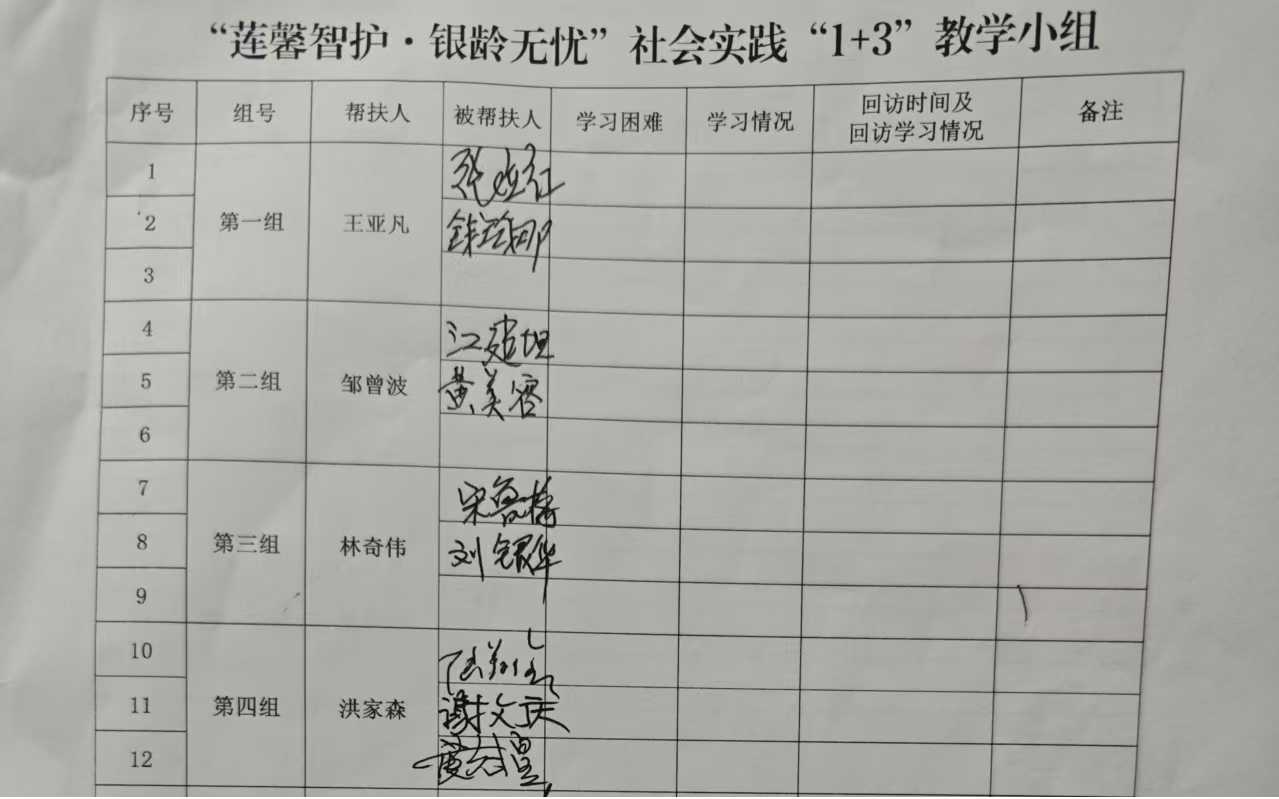 “莲馨智护·银龄无忧”社会实践“1+3”教学小组
序号 组号 帮扶人 被帮扶人 学习困难 学习情况 回访时间及 备注
回访学习情况
1
2 第一组 王亚凡
3
4 江建坦
5 第二组 邹曾波 黄美容
6
7 宋
8 第三组 林奇伟 刘银华
9
10
11 第四组 洪家森 谢文庆
12